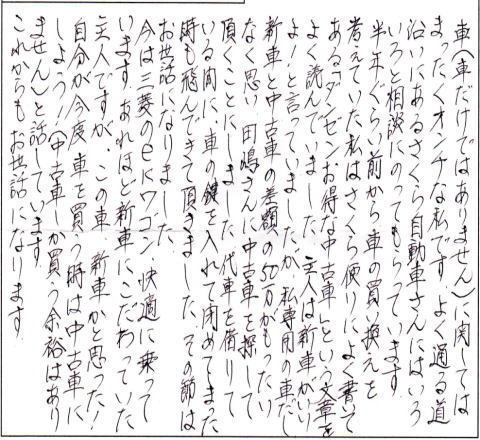 車(車だけではありません)に関しては
まったくオンチな私です。よく通る道
沿いにあるさくら自動車さんにはいろ
いろと相談にのってもらっています。
半年ぐらい前から車の買い換えを
考えていた私はさくら便りによく書いて
ある「ダンゼンお得な中古車」という文章を
よく読んでいました。主人は新車がいい
よ!と言っていましたが、私専用の車だし
新車と中古車の差額の50万がもったい
なく思い田嶋さんに中古車を探して
頂くことにしました。代車を借りて
いる間に、車の鍵を入れて閉めてしまった
時も飛んできて頂きました。その節は
お世話になりました。
今は三菱のeKワゴン快適に乗って
います。あれほど新車にこだわっていた
主人ですが、この車、新車かと思った!
自分が今度車を買う時は中古車に
しよう!!(中古車しか買う余裕はあり
ません)と話しています。
これからもお世話になります。